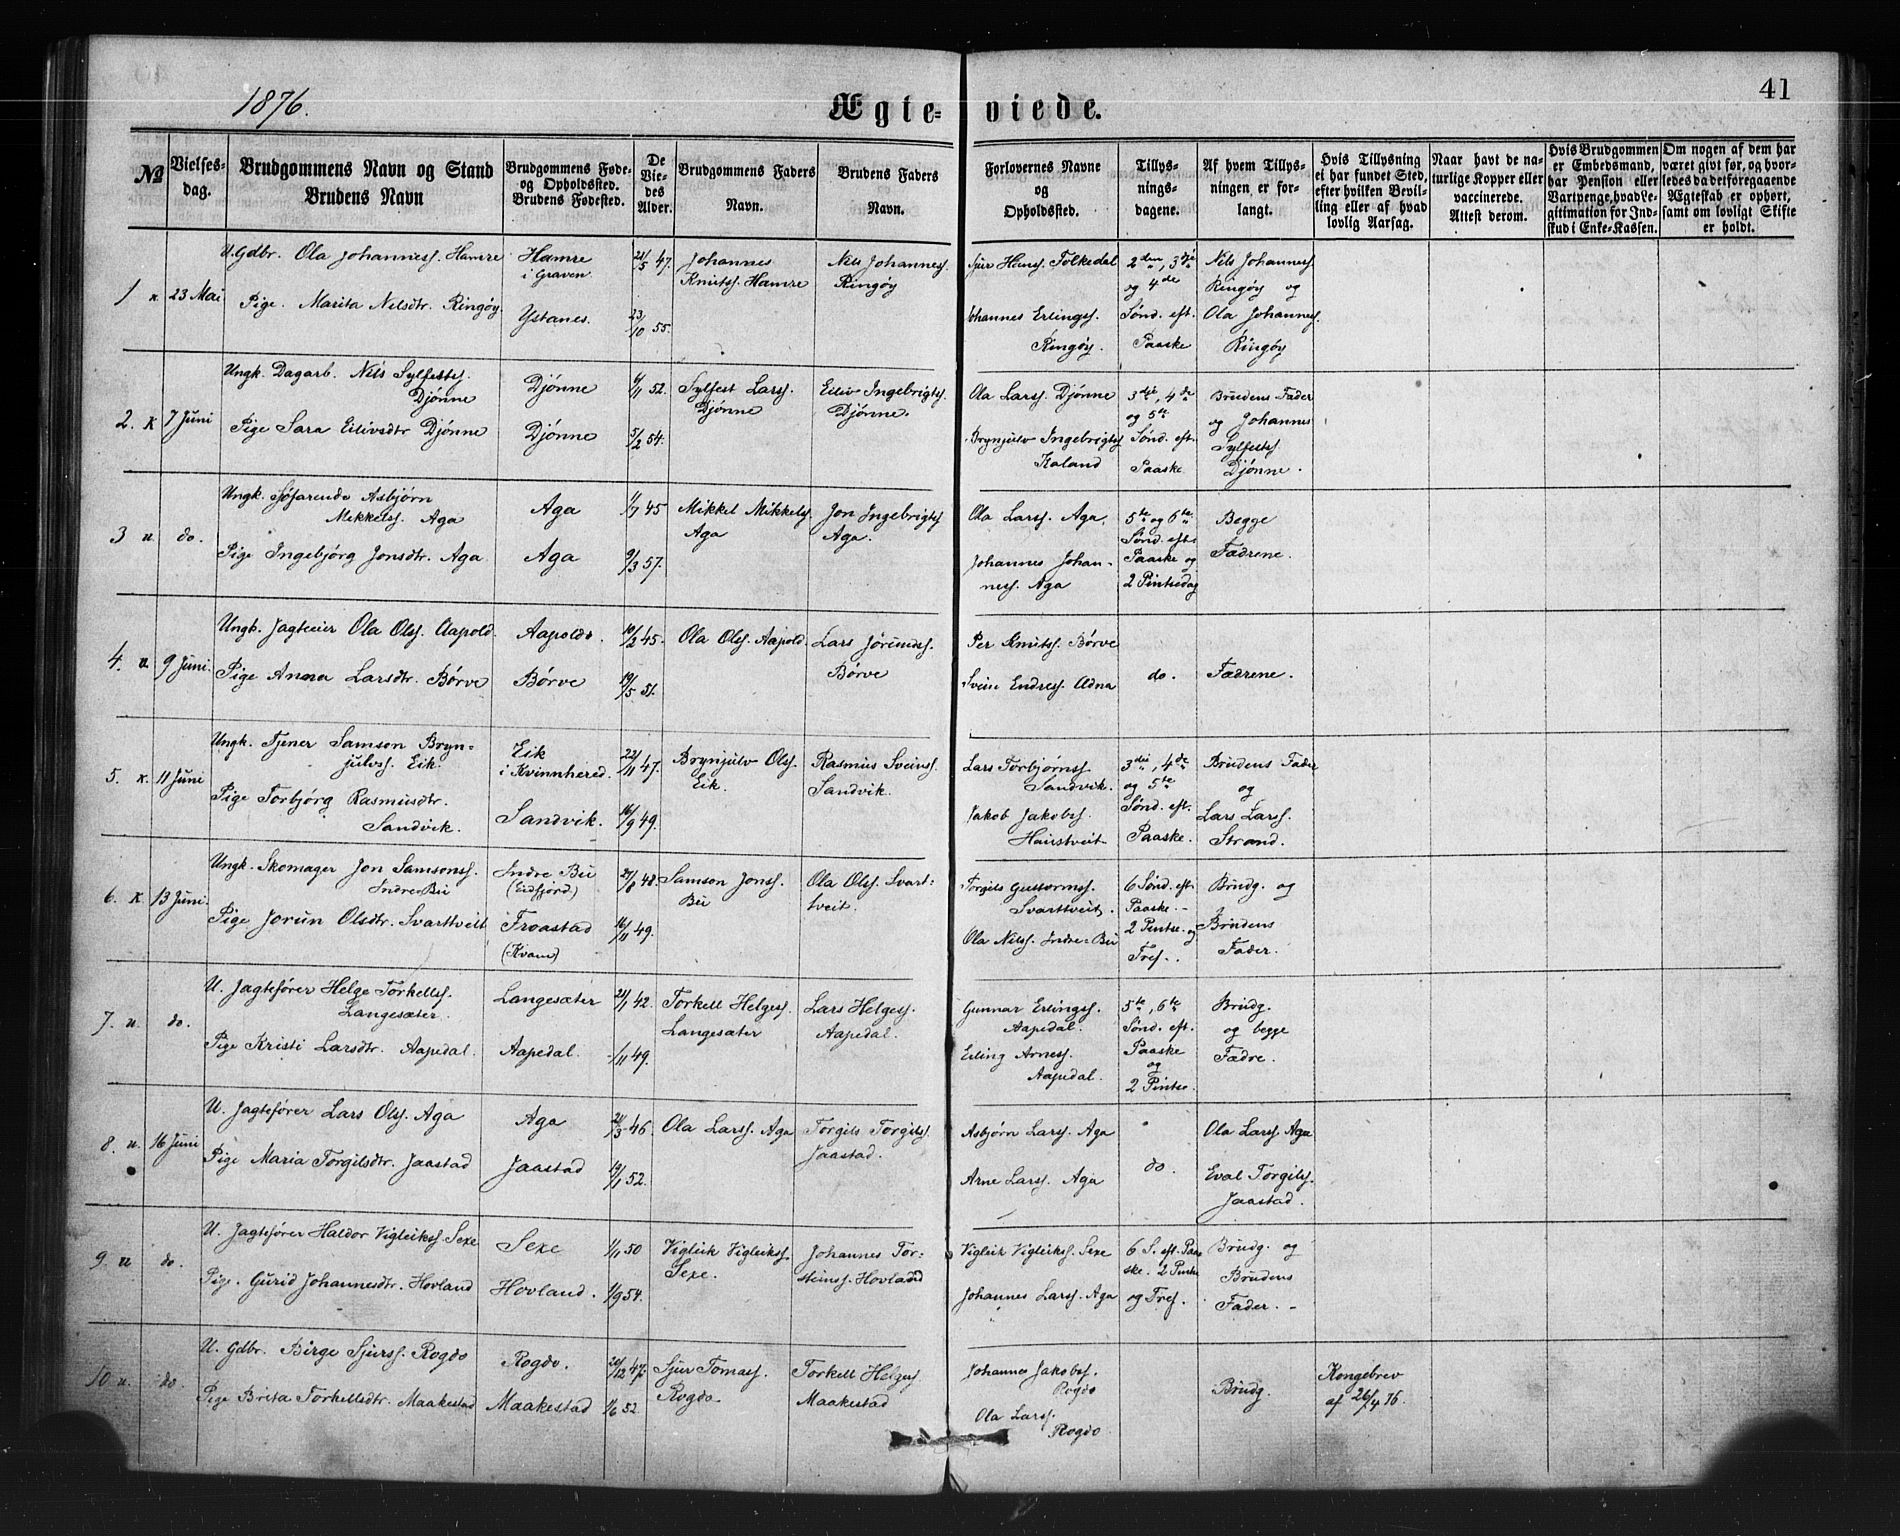 1876.
Ægte=
viede.
41
№
Vielses-
dag.
Brudgommens Navn og Stand
Brudens Navn
Brudgommens Føde-
og Opholdssted.
Brudens Fødested.
De
Vie-
des
Alder.
Brudgommens Faders
Navn.
Brudens Faders
Navn.
Forlovernes Navne
og
Opholdssted.
Tillys-
nings-
dagene.
Af hvem Tillys-
ningen er for-
langt.
Hvis Tillysning
ei har fundet Sted,
efter hvilken Bevil-
ling eller af hvad
lovlig Aarsag.
Naar havt de na-
turlige Kopper eller
vaccinerede.
Attest derom.
Hvis Brudgommen
er Embedsmand,
har Pension eller
Vartpenge, hvad Le-
gitimation for Ind-
skud i Enke-Kassen.
Om nogen af dem har
været givt før, og hvor-
ledes da det foregaaende
Ægtestab er ophørt,
samt om lovligt Skifte
er holdt.
1 k 23 Mai
U. Gdbr. Ola Johanness. Hamre
Pige. Marita Nilsdtr. Ringøy.
Hamre
i Graven
Ystanes.
21/5 47.
23/10 55.
Johannes
Knuts. Hamre
Nils Johanness.
Ringøy
Sjur Hans. Folkedal
Johannes Erlings.
Ringøy.
2den, 3die
og 4de
Sønd. eft.
Paaske
Nils Johanness.
Ringøy og
Ola Johanness.
Ringøy
2. k 7 Juni
Ungk. Dagarb. Nils Sylfests.
Djønne
Pige Sara Eilivsdtr Djønne
Djønne
Djønne
6/11 52.
5/2 54.
Sylfest Larss.
Djønne
Eiliv Ingebrigts.
Djønne.
Ola Larss. Djønne
Brynjulv Ingebrigts.
Kaland
3die, 4de
og 5te
Sønd. eft.
Paaske.
Brudens Fader
og Johannes
Sylfests.
Djønne.
3 u. do.
Ungk. Søfarende Asbjørn
Mikkels. Aga
Pige Ingebjørg Jonsdtr. Aga
Aga
Aga
1/7 45
9/3 57.
Mikkel Mikkels.
Aga
Jon Ingebrigts.
Aga.
Ola Larss. Aga.
Johannes Johan-
ness. Aga
5te og 6te
Sønd. eft.
Paaske og
2 Pintsedag
Begge
Fædrene.
4. u. 9 Juni.
Ungk. Jagteeier Ola Olss. Aapold.
Pige Anna Larsdtr. Børve
Aapolds.
Børve
10/2 45.
19/5 51.
Ola Olss. Aapold.
Lars Jørunds.
Børve
Per Knuts. Børve
Svein Endress. Adna
do.
Fædrene.
5. k. 11 Juni
Ungk. Tjener Samson Bryn=
julvs. Eik.
Pige Torbjørg Rasmusdtr.
Sandvik.
Eik
i Kvinnhered.
Sandvik.
22/11 47.
16/9 49.
Brynjulv Olss.
Eik.
Rasmus Sveins.
Sandvik.
Lars Torbjørns.
Sandvik.
Jakob Jakobs.
Haustveit
3die, 4de
og 5te
Sønd. eft.
Paaske.
Brudens Fader
og
Lars Larss.
Strand.
6. k 13 Juni.
Ungk. Skomager Jon Samsons.
Indre-Bu
Pige Jorun Olsdtr. Svarttveit
Indre Bu
(Eidfjord.)
Froastad
(Kvam)
27/8 48.
16/11 49.
Samson Jons.
Bu
Ola Olss. Svart:
tveit.
Torgils Guttorms.
Svarttveit.
Ola Nilss. Indre-Bu
6 Sønd. eft.
Paaske. -
2 Pintse. og
Tref.
Brudg. og
Brudens
Fader.
7. u. do.
U. Jagtefører Helge Torkells.
Langesæter.
Pige Kristi Larsdtr. Aapedal.
Langesæter
Aapedal.
21/1 42.
-/11 49.
Torkell Helges.
Langesæter
Lars Helges.
Aapedal.
Gunnar Erlings.
Aapedal.
Erling Arnes.
Aapedal.
5te, 6te
Sønd. eft.
Paaske
og
2 Pintse.
Brudg.
og begge
Fædre.
8. u. 16 Juni
U. Jagtefører Lars Olss. Aga
Pige Maria Torgilsdtr. Jaastad
Aga
Jaastad
21/3 46
19/1 52.
Ola Larss. Aga
Torgils Torgilss.
Jaastad.
Asbjørn Larss. Aga
Arne Larss. Aga
do.
Ola Larss Aga
Eval Torgilss.
Jaastad.
9 u do.
U. Jagtefører Haldor Vigleikss. Sexe
Pige. Gurid Johannesdtr. Hovland
Sexe
Hovland.
1/11 50
1/9 54.
Vigleik Vigleikss.
Sexe.
Johannes Tor:
steinss. Hovland
Vigleik Vigleikss. Sexe
Johannes Larss. Aga
6 S. eft. Paa
ske. 2 Pintse
og Tref.
Brudg. og
Brudens
Fader. -
10 u. do
U. Gdbr. Birge Sjurss. Rogdo
Pige Brita Torkellsdtr. Maakestad
Rogdo.
Maakestad
20/12 47
1/6 52.
Sjur Tomass.
Rogdo
Torkell Helges.
Maakestad
Johannes Jakobs.
Rogdo
Ola Larss.
Rogdo
Brudg.
Kongebrev
af 26/4 76.